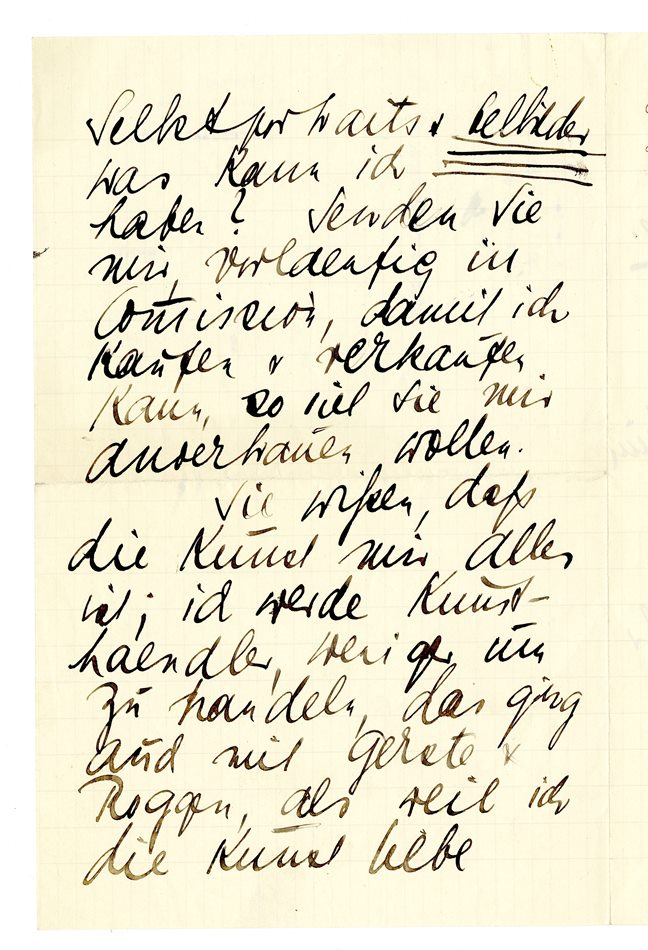 Selbstportraits & Oelbilder
was kann ich
haben? Senden Sie
mir, vorlaeufig in
Comission, damit ich
kaufen & verkaufen
kann, so viel Sie mir
anvertrauen wollen.
Sie wißen, daß
die Kunst mir alles
ist; ich werde Kunst-
haendler, weniger um
zu handeln, das ging
auch mit Gerste &
Roggen, als weil ich
die Kunst liebe